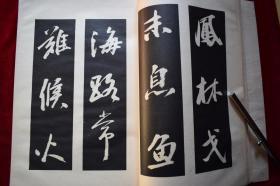 鳳林戈
未息魚
海路常
難候火